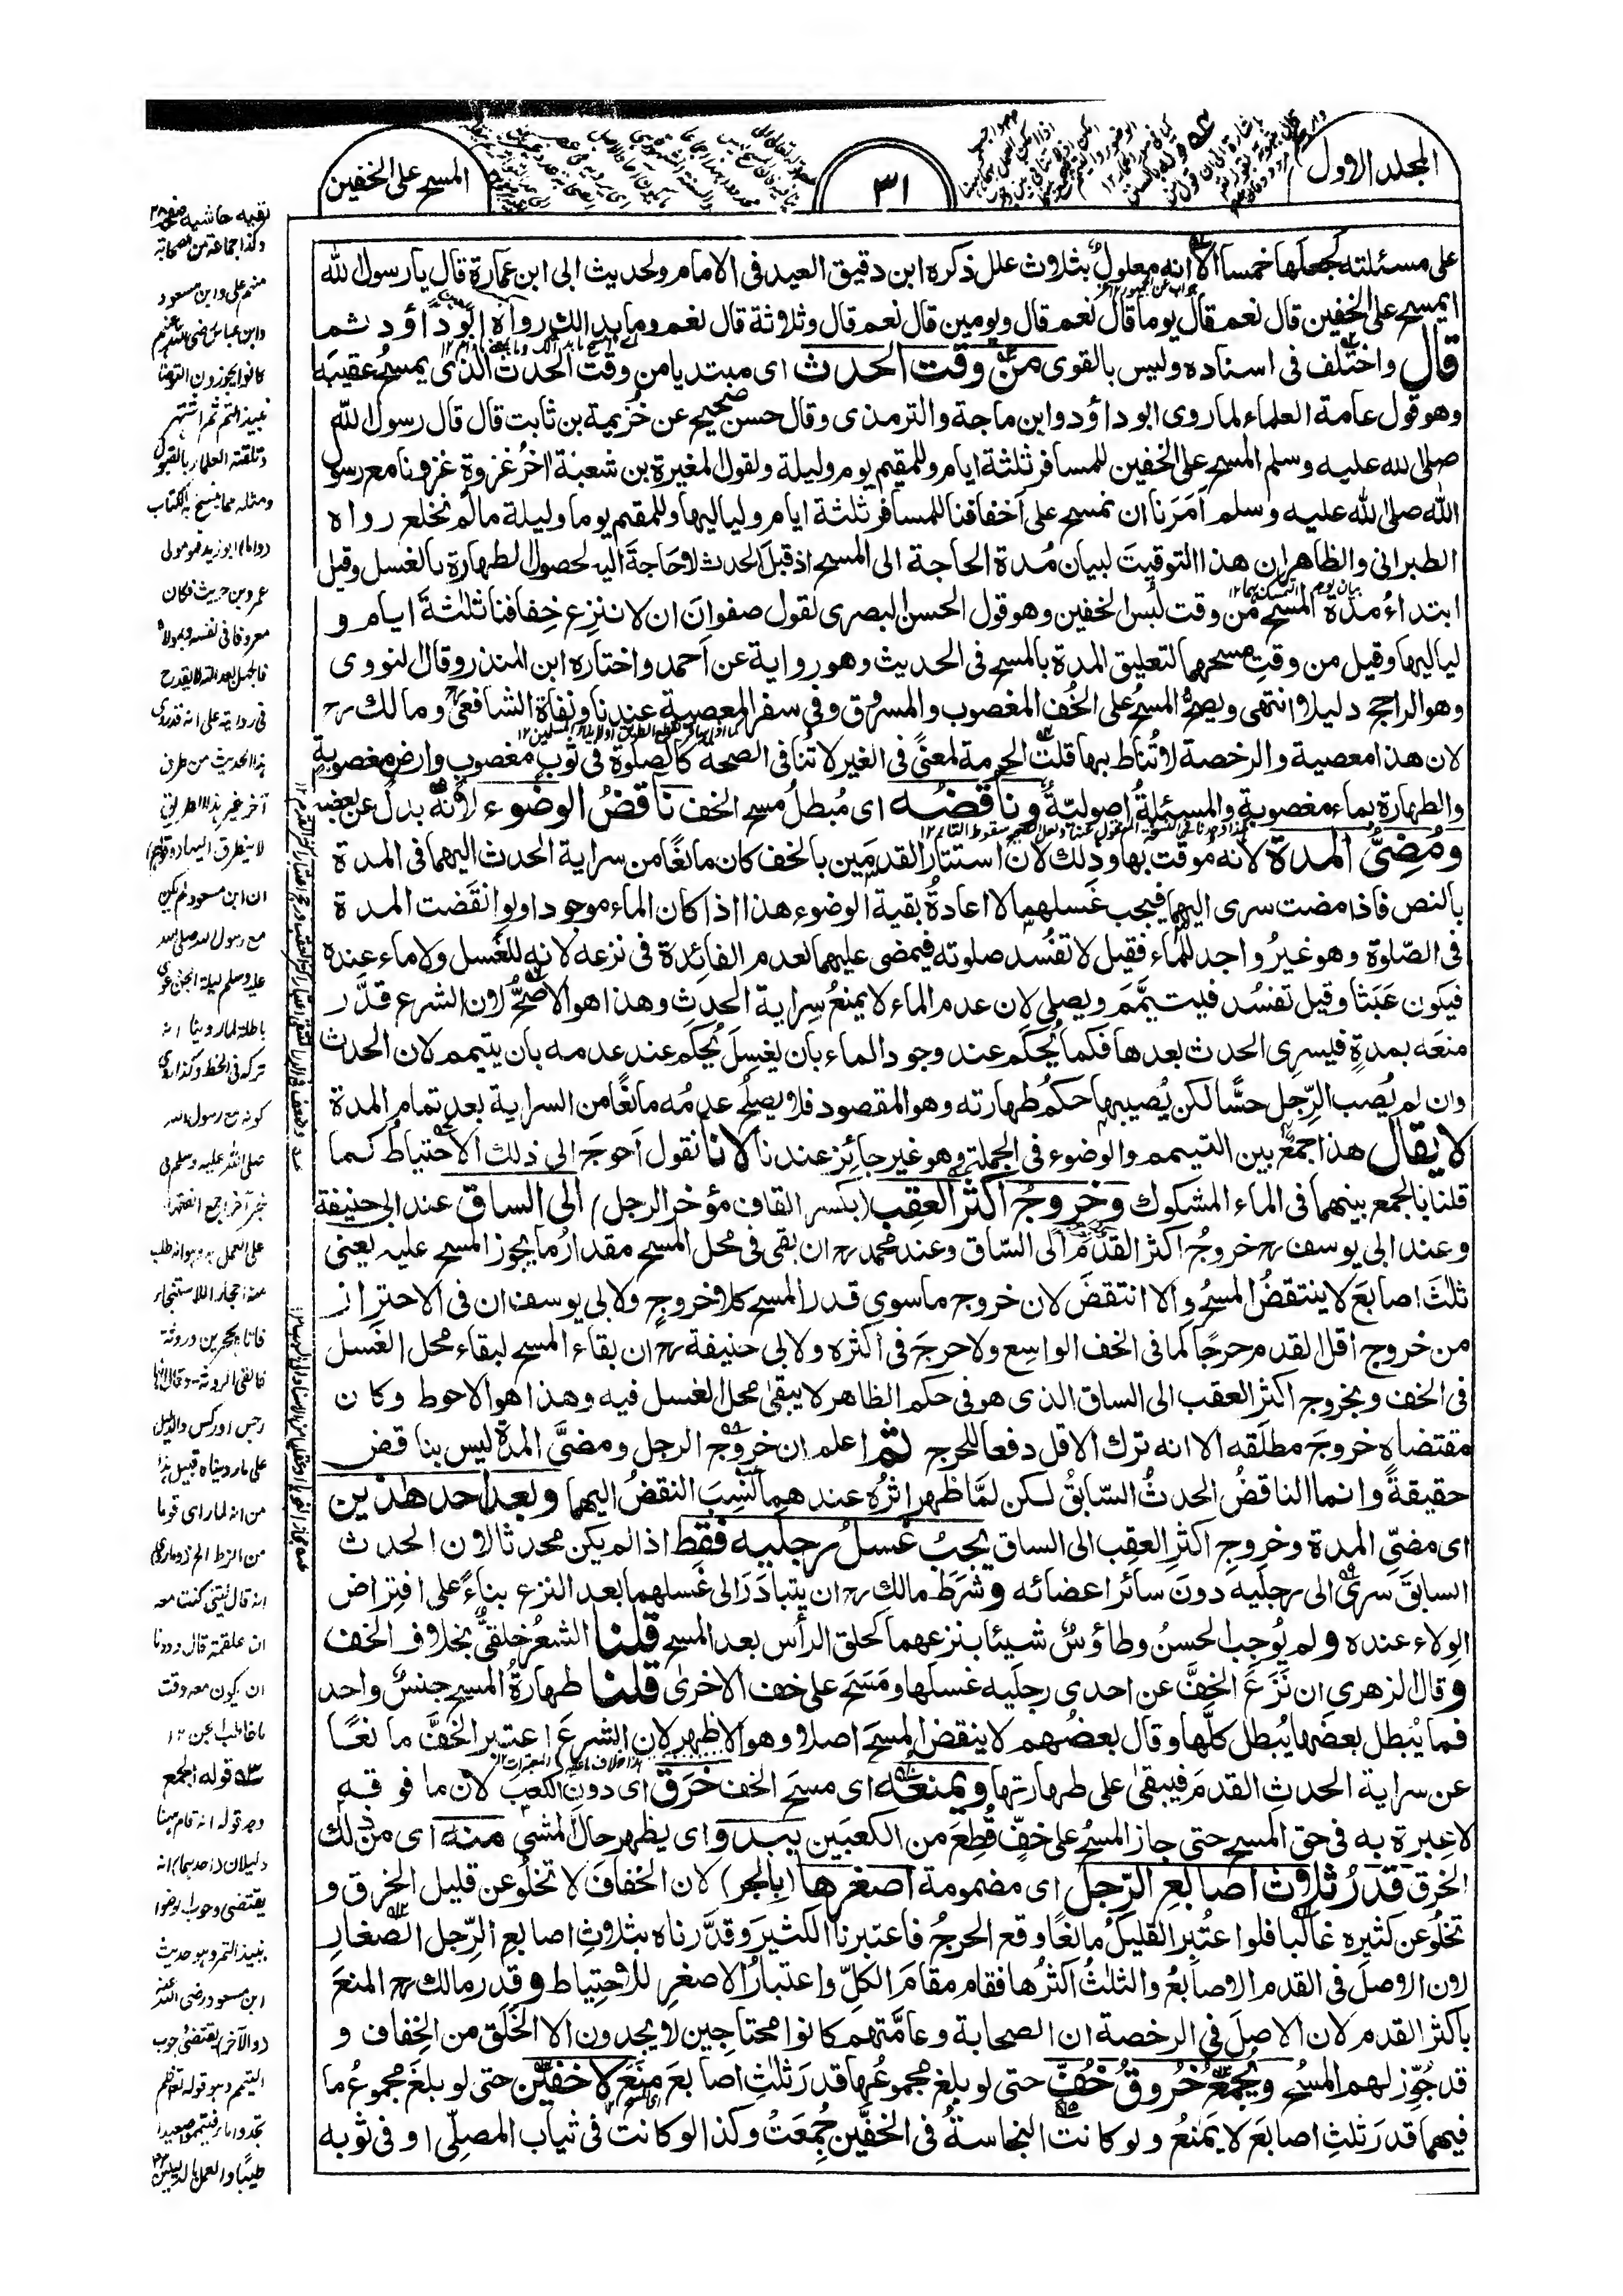 المجلد الاول
٣١
المسح على الخفين
على مسئلته كجعلها خمسا الا انه معلول بثلاث علل ذكره ابن دقيق العيد فى الامام ولحديث ابى ابن عمارة قال يا رسول الله
ايمسح على الخفين قال نعم قال يوما قال نعم قال ويومين قال نعم قال وثلاثة قال نعم وما بدا لك رواه ابو داؤد ثم
قال واختلف فى اسناده وليس بالقوى من وقت الحدث اى مبتديا من وقت الحدث الذى يمسح عقيبه
وهو قول عامة العلماء لما روى ابو داؤد وابن ماجة والترمذى وقال حسن صحيح عن خزيمة بن ثابت قال قال رسول الله
صلى الله عليه وسلم المسح على الخفين للمسافر ثلثة ايام وللمقيم يوم وليلة ولقول المغيرة بن شعبة اخر غزوة غزونا مع رسول
الله صلى الله عليه وسلم امرنا ان نمسح على اخفافنا للمسافر ثلثة ايام ولياليها وللمقيم يوما وليلة مالم نخلع رواه
الطبرانى والظاهر ان هذا التوقيت لبيان مدة الحاجة الى المسح اذ قبل الحدث لا حاجة اليه لحصول الطهارة بالغسل وقيل
ابتداء مدة المسح من وقت لبس الخفين وهو قول الحسن البصرى لقول صفوان ان لا ننزع خفافنا ثلثة ايام و
لياليها وقيل من وقت مسحهما لتعليق المدة بالمسح فى الحديث وهو رواية عن احمد واختاره ابن المنذر وقال النووى
وهو الراجح دليلا انتهى ويصح المسح على الخف المغصوب والمسروق وفى سفر المعصية عندنا ونفاة الشافعى رح ومالك رح
لان هذا معصية والرخصة لا تناط بها قلت الحرمة لمعنى فى الغير لا تنافى الصحة كالصلوة فى ثوب مغصوب وارض مغصوبة
والطهارة بماء مغصوبة والمسئلة اصولية وناقضه اى مبطل مسح الخف ناقض الوضوء لانه بدل عن بعضه
ومضى المدة لانه موقت بها وذلك لان استتار القدمين بالخف كان مانعا من سراية الحدث اليهما فى المدة
بالنص فاذا مضت سرى اليهما فيجب غسلهما لا اعادة بقية الوضوء هذا اذا كان الماء موجودا ولو انقضت المدة
فى الصلوة وهو غير واجد للماء فقيل لا تفسد صلوته فيمضى عليهما لعدم الفائدة فى نزعه لانه للغسل ولا ماء عنده
فيكون عبثا وقيل تفسد فيتيمم ويصلى لان عدم الماء لا يمنع سراية الحدث وهذا هو الاصح لان الشرع قدر
منعه بمدة فيسرى الحدث بعدها فكما يحكم عند وجود الماء بان يغسل يحكم عند عدمه بان يتيمم لان الحدث
وان لم يصب الرجل حسا لكن يصيبها حكم طهارته وهو المقصود فلا يصلح عدمه مانعا من السراية بعد تمام المدة
لا يقال هذا جمع بين التيمم والوضوء فى الجملة وهو غير جائز عندنا لانا نقول احوج الى ذلك الاحتياط كما
قلنا بالجمع بينهما فى الماء المشكوك وخروج اكثر العقب (بكسر القاف مؤخر الرجل) الى الساق عند ابى حنيفة
وعند ابى يوسف رح خروج اكثر القدم الى الساق وعند محمد رح ان بقى فى محل المسح مقدار ما يجوز المسح عليه يعنى
ثلث اصابع لا ينتقض المسح والا انتقض لان خروج ما سوى قدر المسح كلا خروج ولابى يوسف ان فى الاحتراز
من خروج اقل القدم حرجا كما فى الخف الواسع ولا حرج فى اكثره ولابى حنيفة رح ان بقاء المسح لبقاء محل الغسل
فى الخف وبخروج اكثر العقب الى الساق الذى هو فى حكم الظاهر لا يبقى محل الغسل فيه وهذا هو الاحوط وكان
مقتضاه خروج مطلقه الا انه ترك الاقل دفعا للحرج ثم اعلم ان خروج الرجل ومضى المدة ليس بناقض
حقيقة وانما الناقض الحدث السابق لكن لما ظهر اثره عندهما نسب النقض اليهما وبعد احد هذين
اى مضى المدة وخروج اكثر العقب الى الساق يجب غسل رجليه فقط اذا لم يكن محدثا لان الحدث
السابق سرى الى رجليه دون سائر اعضائه وشرط مالك رح ان يتبادر الى غسلهما بعد النزع بناء على افتراض
الولاء عنده ولم يوجب الحسن وطاؤس شيئا بنزعهما كحلق الرأس بعد المسح قلنا الشعر خلقى بخلاف الخف
وقال الزهرى ان نزع الخف عن احدى رجليه غسلها ومسح على خف الاخرى قلنا طهارة المسح جنس واحد
فما يبطل بعضها يبطل كلها وقال بعضهم لا ينقض المسح اصلا وهو الاظهر لان الشرع اعتبر الخف مانعا
عن سراية الحدث القدم فيبقى على طهارتها ويمنعه اى مسح الخف خرق اى دون الكعب لان ما فوقه
لا عبرة به فى حق المسح حتى جاز المسح على خف قطع من الكعبين يبدو اى يظهر حال المشى منه اى من ذلك
الخرق قدر ثلاث اصابع الرجل اى مضمومة اصغرها (بالجر) لان الخفاف لا تخلو عن قليل الخرق و
تخلو عن كثيره غالبا فلوا عتبر القليل مانعا وقع الحرج فاعتبرنا الكثير وقدرناه بثلاث اصابع الرجل الصغار
لان الاصل فى القدم الاصابع والثلث اكثرها فقام مقام الكل واعتبار الاصغر للاحتياط وقدر مالك رح المنع
باكثر القدم لان الاصل فى الرخصة ان الصحابة وعامتهم كانوا محتاجين لا يجدون الا الخلق من الخفاف و
قد جوز لهم المسح ويجمع خروق خف حتى لو بلغ مجموعها قدر ثلث اصابع منع لا خفين حتى لو بلغ مجموع ما
فيهما قدر ثلث اصابع لا يمنع ولو كانت النجاسة فى الخفين جمعت وكذا لو كانت فى ثياب المصلى او فى ثوبه
بقيه حاشيه
وكذا جماعة من الصحابة
منهم على وابن مسعود
وابن عباس رضى الله عنهم
كانوا يجوزون التوضأ
بنبيذ التمر ثم اشتهر
وتلقته العلماء بالقبول
ومثله مما ينسخ به الكتاب
واما ابو زيد فهو مولى
عمرو بن حريث فكان
معروفا فى نفسه وبمولاه
فالجهل بعدالته لا يقدح
فى روايته على انه قد روى
هذا الحديث من طرق
آخر غير هذا الطريق
ان ابن مسعود لم يكن
مع رسول الله صلى الله
عليه وسلم ليلة الجن دعوى
باطلة لما روينا انه
تركه فى الخط وكذا روى
كونه مع رسول الله
صلى الله عليه وسلم فى
خبر آخر اجمع الفقهاء
على العمل به وهو انه طلب
منه احجارا للاستنجاء
فاتاه بحجرين وروثة
فالقى الروثة وقال انها
رجس او ركس والدليل
على ما رويناه قبيل هذا
من انه لما راى قوما
من الزط الخ وما روى
انه قال ليتنى كنت معه
ان علقمة قال وددنا
ان يكون معه وقت
ما خاطب الجن ١٢
قوله الجمع
وجه قوله انه قام ههنا
دليلان (احدهما) انه
يقتضى وجوب الوضوء
بنبيذ التمر وهو حديث
ابن مسعود رضى الله عنه
(والآخر) يقتضى وجوب
التيمم وهو قوله تعالى فلم
تجدوا ماء فتيمموا صعيدا
طيبا والعمل بالدليلين